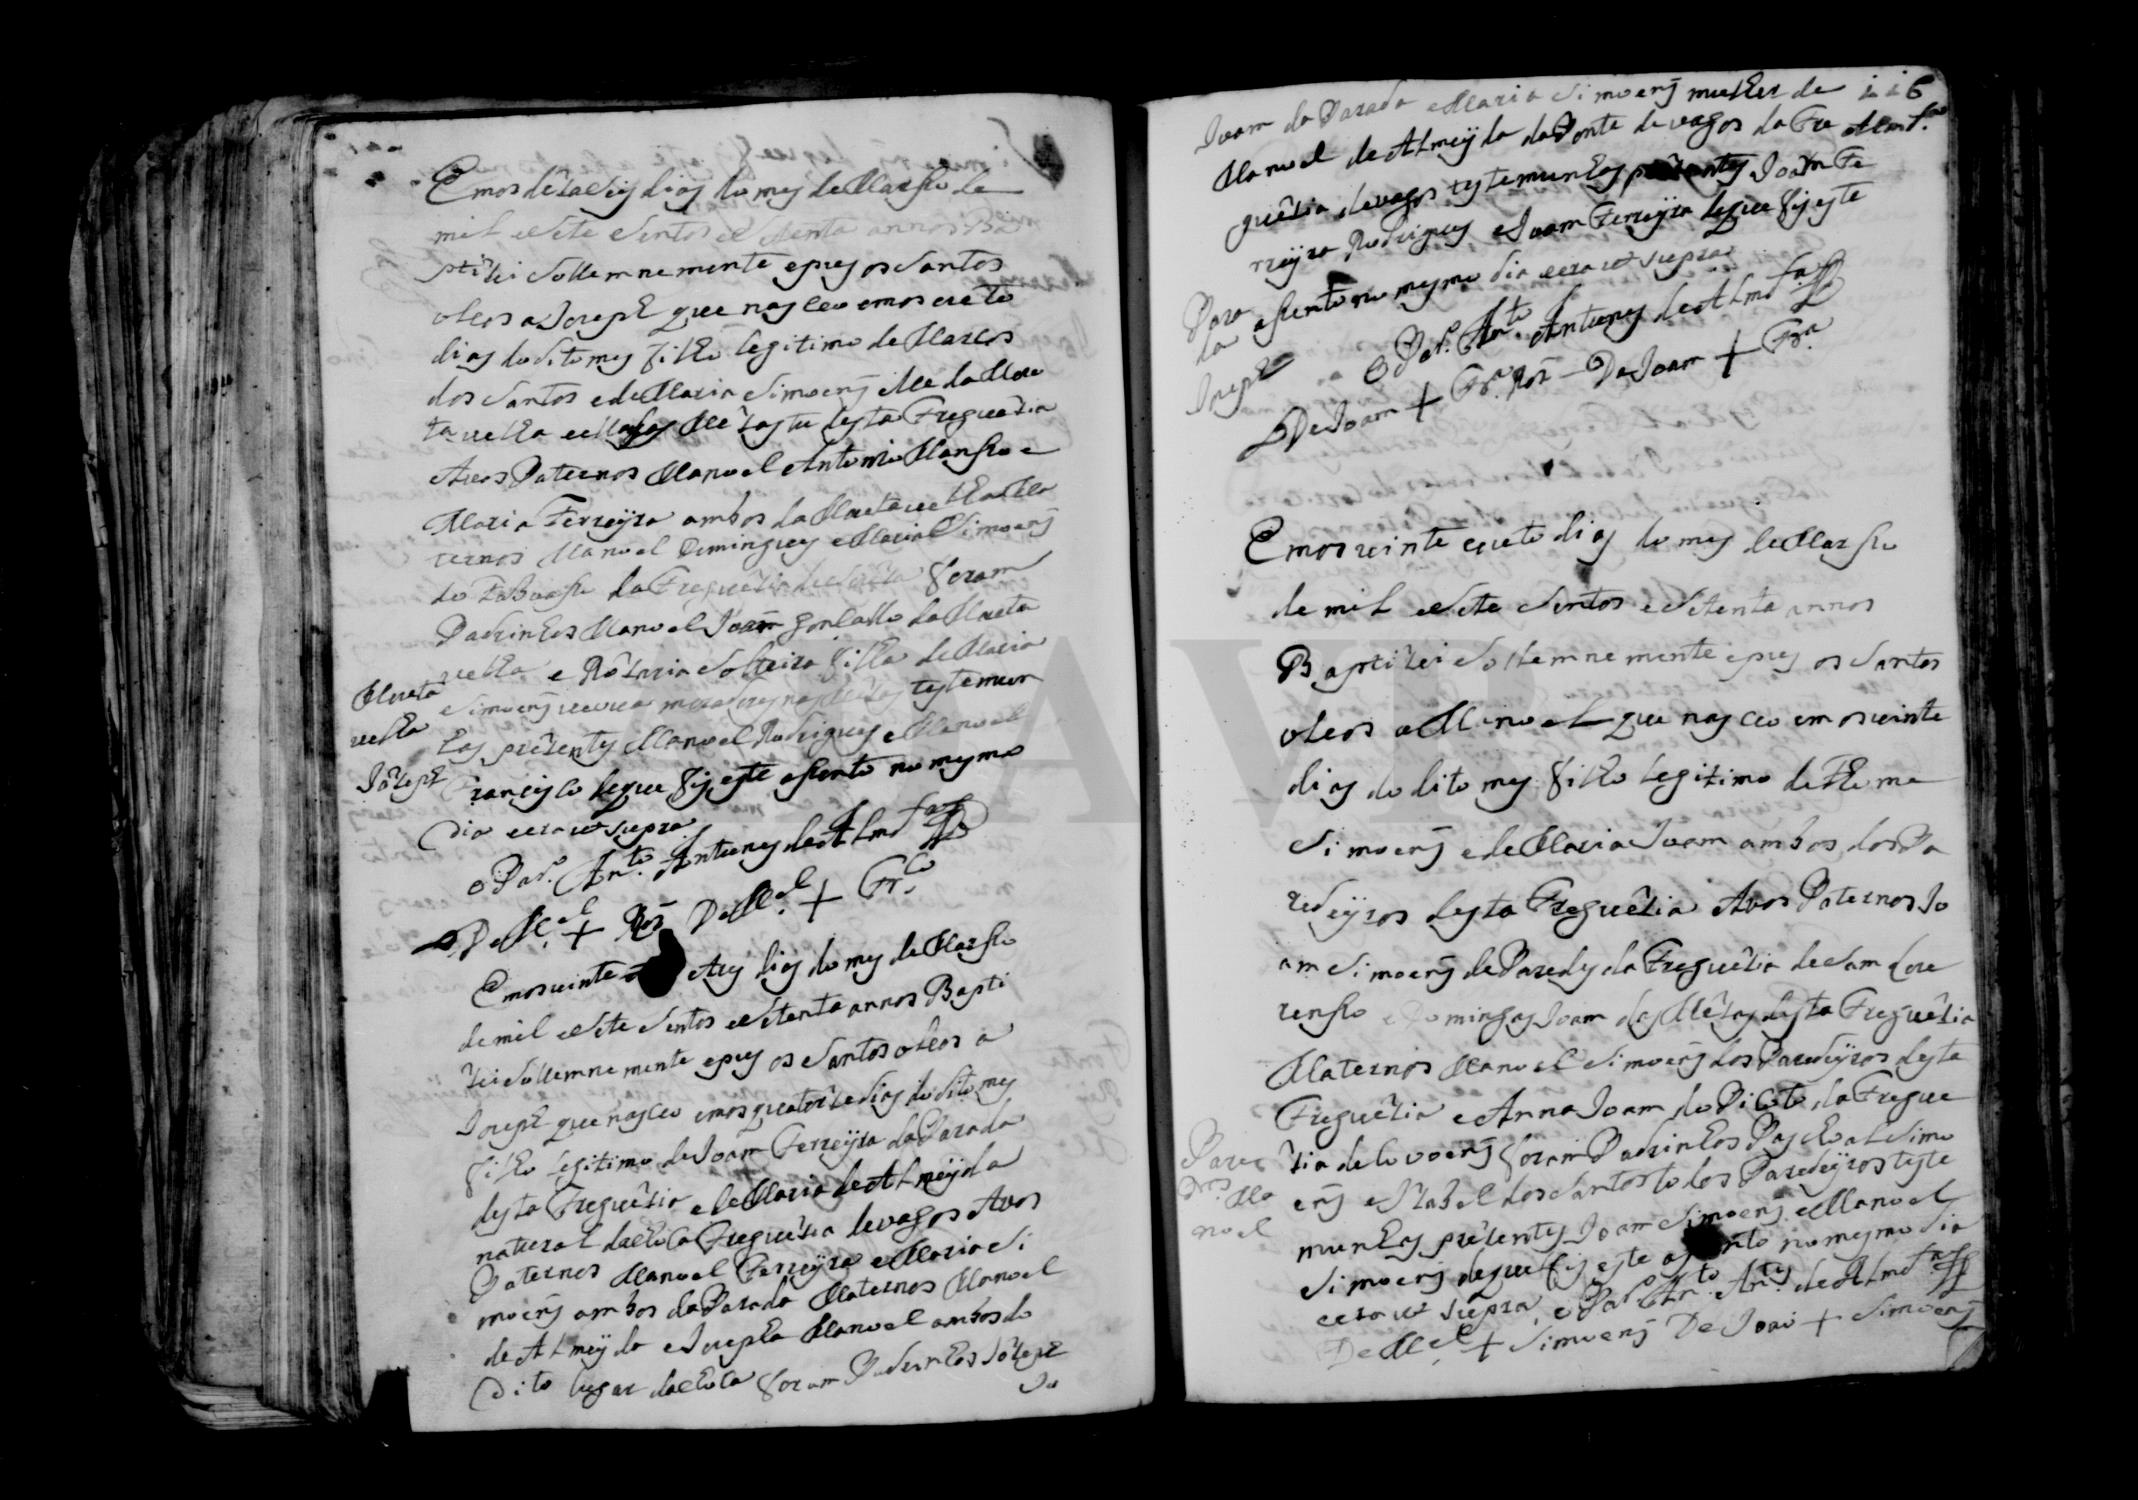 Emos dezaseis dias do mes de Marsso de
mil e sete sentos e setenta annos Ba
ptizei sollemnemente e pus os santos
oleos a Joseph que nasceo emos outo
dias do dito mes filho legitimo de Marcos
dos Santos e de Maria Simoens elle da Mou
ta velha e ella das Mezas tu desta Freguezia
Avos Paternos Manoel Antonio Mansso e
Maria Ferreyra ambos da Mouta velha Ma
ternos Manoel Domingues e Maria Simoens
do da Freguezia de foram
Padrinhos Manoel Joam Gonsallo da Mouta
velha e Rozaria solteira filha de Maria
Simoens veuva moradores nas Mezas testemun
has prezentes Manoel Rodrigues e Manoel
Francisco de que fis este assento no mesmo
dia e era ut supra
Mouta
velha
Jozeph
o Par.º An.to Antunes de Almd.a
De M.el + Roĩz De M.el + Fr.co
Emos vinte e seis dias do mes de Marsso
de mil e sete sentos e setenta annos Bapti
zei sollemnemente e pus os santos oleos a
Joseph que nasceo emos quatorze dias do dito mes
filho legitimo de Joam Ferreyra da Parada
desta Freguezia e de Maria de Almeyda
natural da Freguezia de vagos Avos
Paternos Manoel Ferreyra e Maria Si
moens ambos da Parada Maternos Manoel
de Almeyda e Josepha Manoel ambos do
dito lugar da foram Padrinhos Jozeph
Jo
116
Joam da Parada e Maria Simoens mulher de
Manoel de Almeyda da Ponte de vagos da Fre Almd.a
guezia de vagos testemunhas prezentes Joam Fe
rreyra Rodrigues e Joam Ferreyra de que fis este
assento no mesmo dia e era ut supra
Para
da
Joseph
o Par.º An.to Antunes de Almd.a
De Joam + Fr.a Roĩz - De Joam + Fr.a
Emos vinte e outo dias do mes de Marsso
de mil e sete sentos e setenta annos
Baptizei sollemnemente e pus os santos
oleos a Manoel que nasceo emos vinte
dias do dito mes filho legitimo de Thome
Simoens e de Maria Joam ambos dos Pa
redeyros desta Freguezia Avos Paternos Jo
am Simoens de Paredes da Freguezia de Sam Lou
rensso e Domingas Joam das Mezas desta Freguezia
Maternos Manoel Simoens dos Paredeyros desta
Freguezia e Anna Joam do Picoto da Fregue
zia de Covoens foram Padrinhos Paschoal Simo
ens e Izabel dos Santos todos Paredeyros teste
munhas prezentes Joam Simoens e Manoel
Simoens de que fis este assento no mesmo dia
e era ut supra o Par.º An.to An.tes de Almd.a
Pare
dr.os Ma
noel
De M.el + Simoens De Joaõ + Simoens
AVR